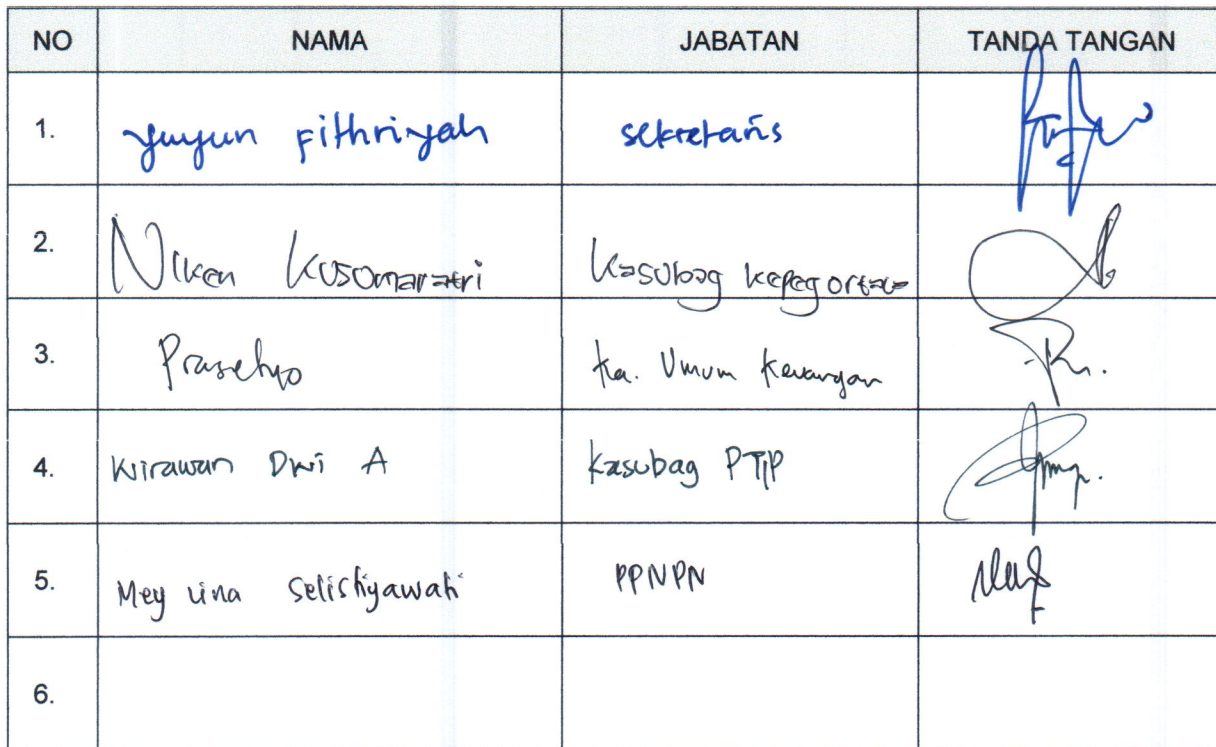 NO NAMA JABATAN TANDA TANGAN
1. Yuyun Fithriyah sekretaris
2. Niken Kusomaratri Kasubag kepegortala
3. Prasetyo Ka. Umum Keuangan
4. Wirawan Dwi A Kasubag PTIP
5. Mey Lina Selistiyawati PPNPN
6.